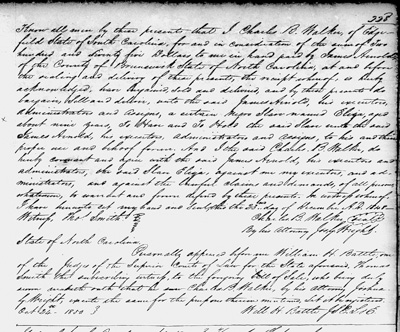 228
Know all men by these presents that I Charles B. Walker, of Edge-
field State of South Carolina, for and in consideration of the sum of Two
hundred and Seventy five Dollars to me in hand paid by James Arnold
of the County of Brunswick State of North Carolina, at and before
the sealing and delivery of these presents, the receipt whereof is duly
acknowledged, have bargained, sold and delivered, and by these presents do
bargain, sell and deliver, unto the said James Arnold, his executors,
administrators and assigns, a certain Negro Slave named Eliza, aged
about nine years, To Have and To Hold the said Slave unto the said
James Arnold, his executors, administrators and assigns, to his and their
proper use and behoof forever. And I the said Charles B. Walker do
hereby covenant and agree with the said James Arnold, his executors and
administrators, the said Slave Eliza, against me my executors, and ad-
ministrators, and against the lawful claims and demands, of all persons
whatsoever, to warrant and forever defend by these presents. In witness whereof
I have hereunto set my hand and Seal, this the
Witness, Tho. Smith
Charles B. Walker, Seal
By his Attorney Joshua Wright
State of North Carolina
Personally appeared before me William H. Battle, one
of the Judges of the Superior Courts of Law for the State aforesaid, Thomas
Smith the subscribing witness, to the foregoing Bill of Sale, who being duly
sworn maketh oath that he saw Charles B. Walker, by his attorney Joshua
G. Wright, execute the same for the purposes therein mentioned, let it be registered
Oct 24th 1850
Will H. Battle J.S.C.